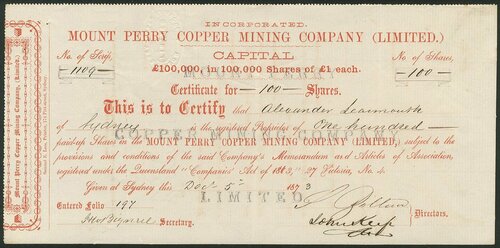 INCORPORATED.
MOUNT PERRY COPPER MINING COMPANY (LIMITED.)
No. of Scrip.
CAPITAL
No. of Shares,
1109
£100,000, in 100,000 Shares of £1 each.
100
Certificate for 100 Shares.
This is to Certify that Alexander Learmouth
of Sydney is the registered Proprietor of One hundred
paid-up Shares in the MOUNT PERRY COPPER MINING COMPANY (LIMITED), subject to the
provisions and conditions of the said Company's Memorandum and Articles of Association,
registered under the Queensland "Companies' Act of 1863," 27 Victoria, No. 4.
Given at Sydney this Decr 5th 1873
Entered Folio 197
Secretary.
John Keep
Directors.
COPPER MINING COMPANY
LIMITED
Mount Perry Copper Mining Company, (Limited.)